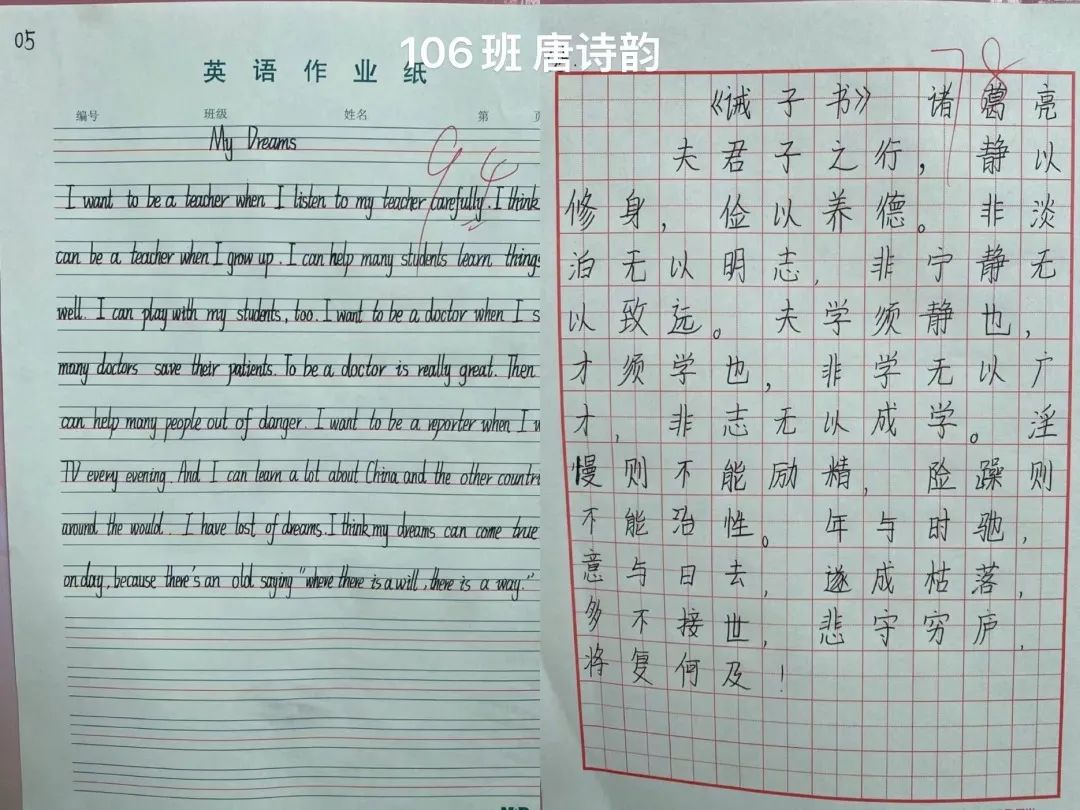 106班 唐诗韵
05
英语作业纸
编号 班级 姓名 第 页
94
My Dreams
I want to be a teacher when I listen to my teacher carefully. I think
can be a teacher when I grow up. I can help many students learn things
well. I can play with my students, too. I want to be a doctor when I s
many doctors save their patients. To be a doctor is really great. Then
can help many people out of danger. I want to be a reporter when I w
TV every evening. And I can learn a lot about China and the other countri
around the would. I have lost of dreams. I think my dreams can come true
on day, because there's an old saying "where there is a will, there is a way."
78
《诫子书》 诸葛亮
夫君子之行，静以
修身，俭以养德。非淡
泊无以明志，非宁静无
以致远。夫学须静也，
才须学也，非学无以广
才，非志无以成学。淫
慢则不能励精，险躁则
不能治性。年与时驰，
意与日去，遂成枯落，
多不接世，悲守穷庐，
将复何及！